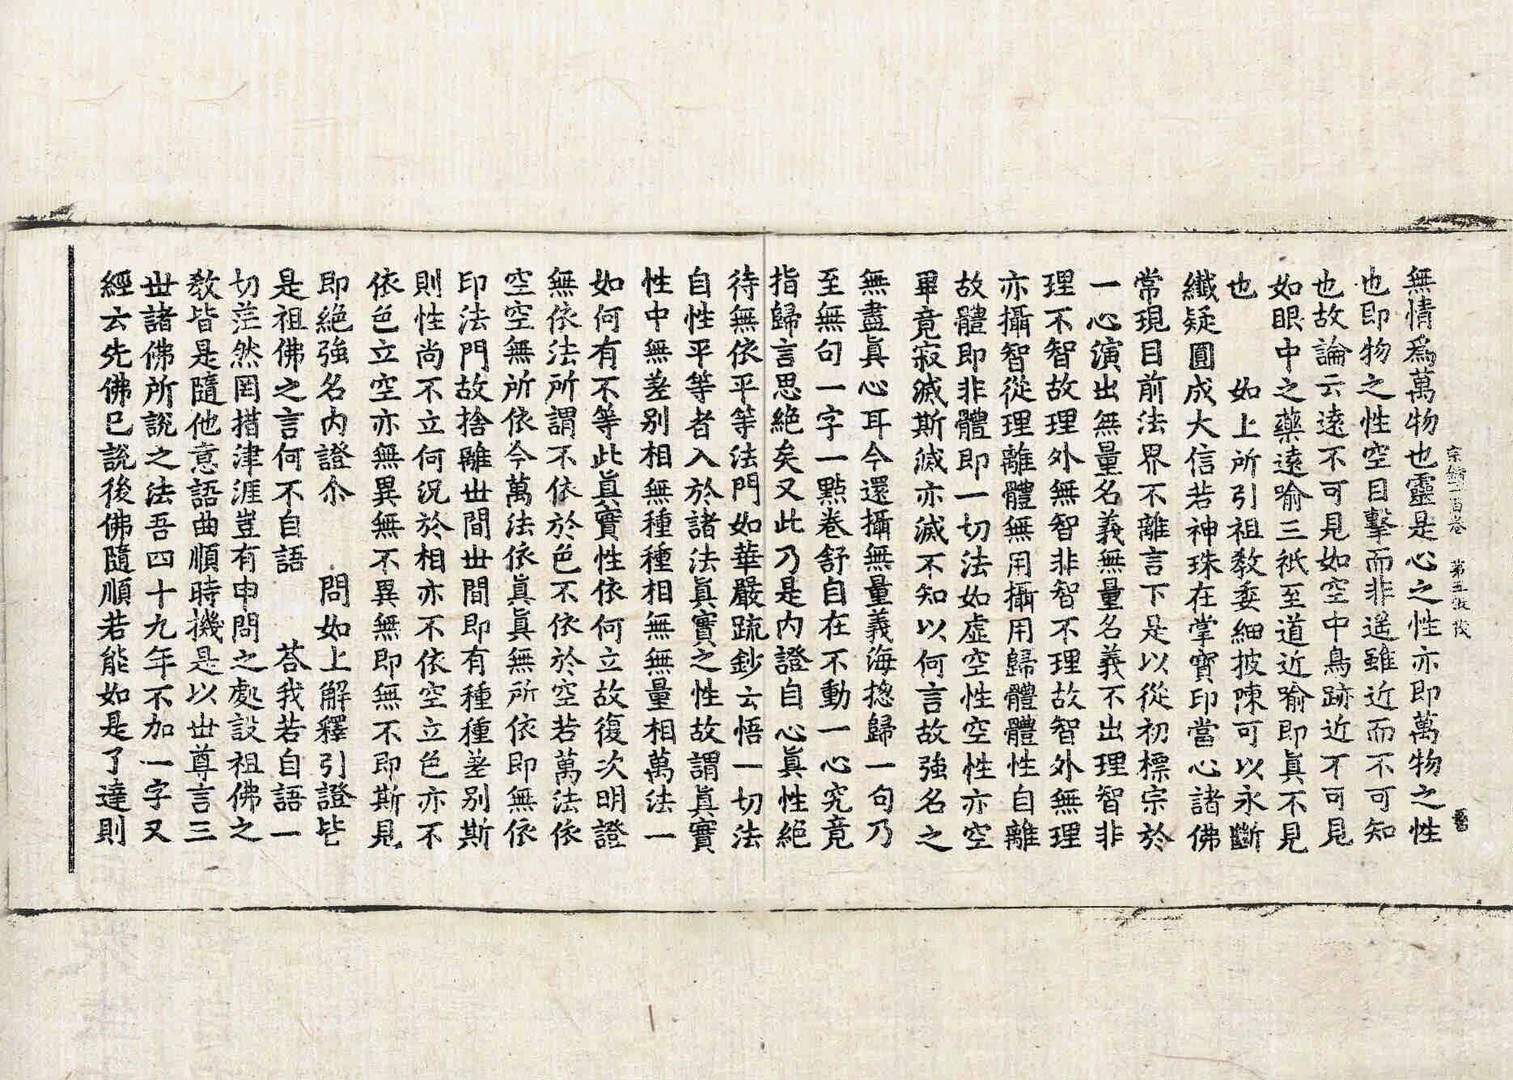 無情爲萬物也靈是心之性亦即萬物之性
宗鏡一百卷 第五張 俊
也即物之性空目擊而非遥雖近而不可知
也故論云遠不可見如空中鳥跡近不可見
如眼中之藥遠喻三祇至道近喻即眞不見
也 如上所引祖教委細披陳可以永斷
纖疑圓成大信若神珠在掌寳印當心諸佛
常現目前法界不離言下是以從初標宗於
一心演出無量名義無量名義不出理智非
理不智故理外無智非智不理故智外無理
亦攝智從理離體無用攝用歸體體性自離
故體即非體即一切法如虚空性空性亦空
畢竟寂滅斯滅亦滅不知以何言故強名之
無盡眞心耳今還攝無量義海揔歸一句乃
至無句一字一點卷舒自在不動一心究竟
指歸言思絶矣又此乃是内證自心眞性絶
待無依平等法門如華嚴䟽鈔云悟一切法
自性平等者入於諸法眞實之性故謂眞實
性中無差别相無種種相無無量相萬法一
如何有不等此眞實性依何立故復次明證
無依法所謂不依於色不依於空若萬法依
空空無所依今萬法依眞眞無所依即無依
印法門故捨離世間世間即有種種差别斯
則性尚不立何況於相亦不依空立色亦不
依色立空亦無異無不異無即無不即斯見
即絶強名内證尒 問如上解釋引證皆
是祖佛之言何不自語 荅我若自語一
切茫然罔措津涯豈有申問之處設祖佛之
敎皆是隨他意語曲順時機是以世尊言三
世諸佛所說之法吾四十九年不加一字又
經云先佛已說後佛隨順若能如是了達則